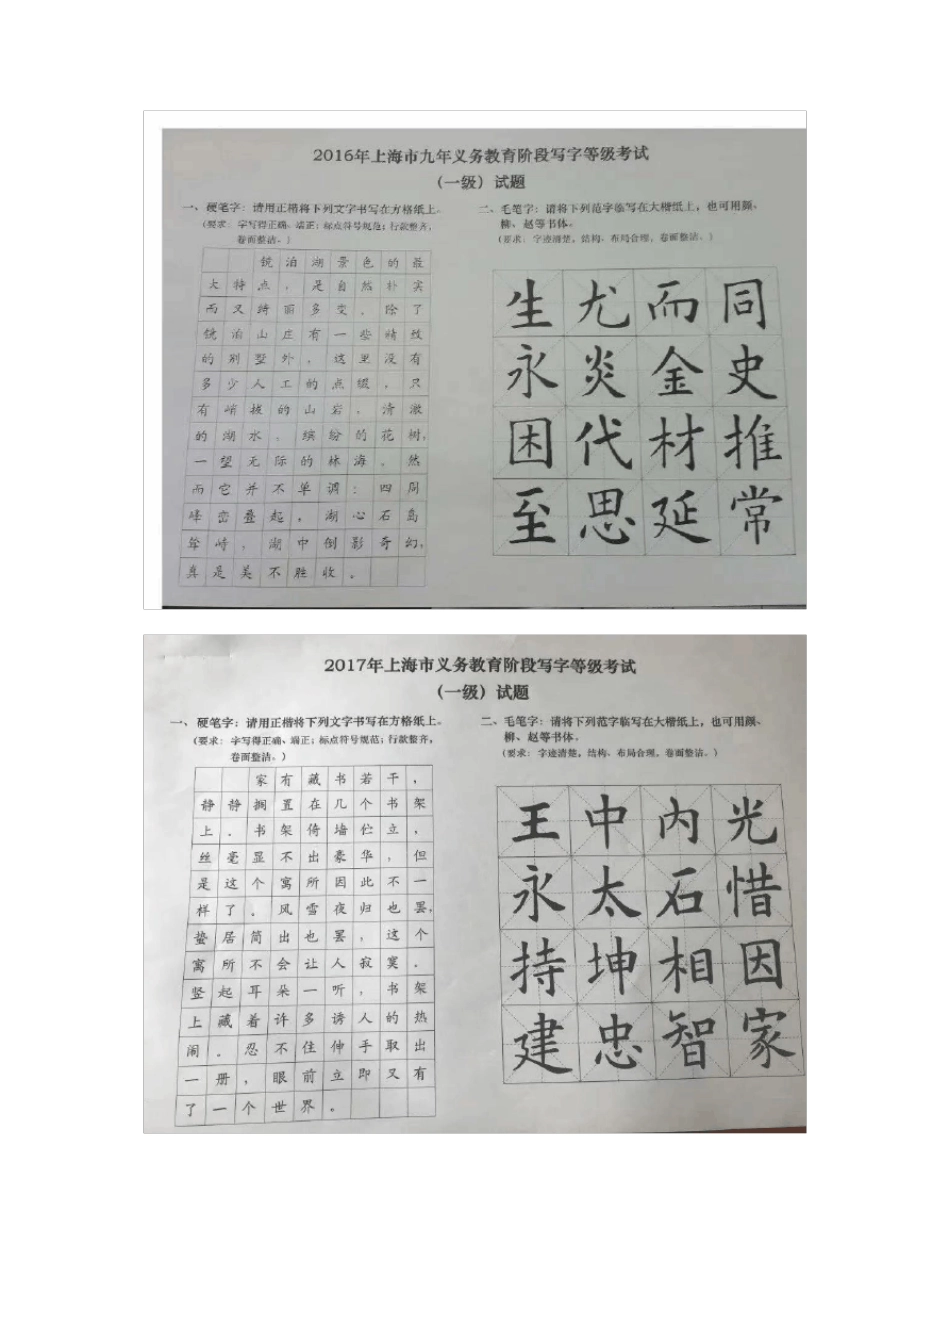 2016年上海市九年义务教育阶段写字等级考试
（一级）试题
一、硬笔字：请用正楷将下列文字书写在方格纸上。
（要求：字写得正确、端正；标点符号规范；行款整齐，
卷面整洁。）
镜泊湖景色的最
大特点，是自然朴实
而又绮丽多变。除了
镜泊山庄有一些精致
的别墅外，这里没有
多少人工的点缀，只
有峭拔的山岩，清澈
的湖水，缤纷的花树，
一望无际的林海。然
而它并不单调：四周
峰峦叠起，湖心石岛
耸峙，湖中倒影奇幻，
真是美不胜收。
二、毛笔字：请将下列范字临写在大楷纸上，也可用颜、
柳、赵等书体。
（要求：字迹清楚，结构、布局合理，卷面整洁。）
生尤而同
永炎金史
困代材推
至思延常
2017年上海市义务教育阶段写字等级考试
（一级）试题
一、硬笔字：请用正楷将下列文字书写在方格纸上。
（要求：字写得正确、端正；标点符号规范；行款整齐，
卷面整洁。）
家有藏书若干，
静静搁置在几个书架
上。书架倚墙伫立，
丝毫显不出豪华，但
是这个寓所因此不一
样了。风雪夜归也罢，
蛰居简出也罢，这个
寓所不会让人寂寞。
竖起耳朵一听，书架
上藏着许多诱人的热
闹。忍不住伸手取出
一册，眼前立即又有
了一个世界。
二、毛笔字：请将下列范字临写在大楷纸上，也可用颜、
柳、赵等书体。
（要求：字迹清楚，结构、布局合理，卷面整洁。）
王中内光
永太石惜
持坤相因
建忠智家